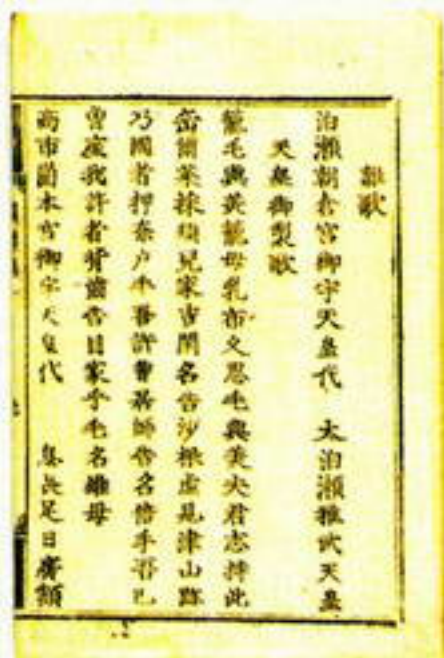 雜歌
泊瀬朝倉宮御宇天皇代 太泊瀬稚武天皇
天皇御製歌
籠毛與美籠母乳布久思毛與美夫君志持此
岳爾菜採須兒家吉閑名告沙根虚見津山跡
乃國者押奈戸手吾許曽居師告名倍手吾己
曽座我許者背齒告目家乎毛名雄母
高市岡本宮御宇天皇代 息長足日廣額